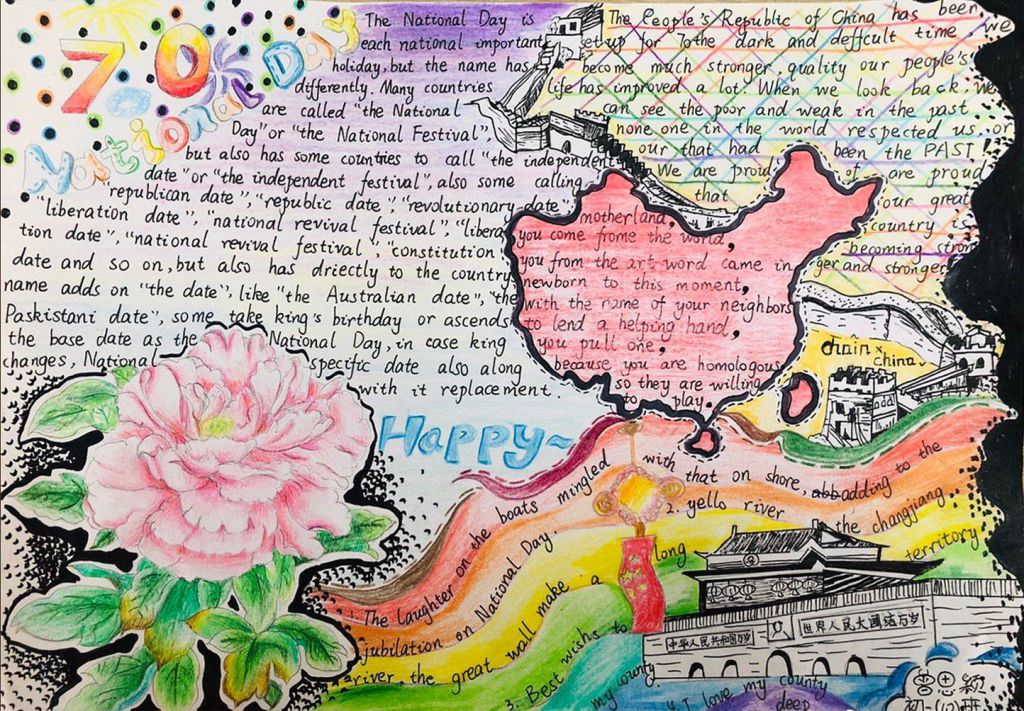 70
National Day
The National Day is
each national important
holiday, but the name has
differently. Many countries
are called "the National
Day" or "the National Festival",
but also has some countries to call "the independent
date" or "the independent festival", also some calling
"republican date", "republic date", "revolutionary date",
"liberation date", "national revival festival", "libera
tion date", "national revival festival", "constitution
date and so on, but also has driectly to the country
name adds on "the date", like "the Australian date", "the
Paskistani date", some take king's birthday or ascends
the base date as the National Day, in case king
changes, National specific date also along
with it replacement.
The People's Republic of China has been
set up for 70the dark and deffcult time, we
become much stronger, quality our people's
life has improved a lot! When we look back, we
can see the poor and weak in the past,
none one in the world respected us, or
our that had been the PAST!
We are proud of are proud
that our great
country is
becoming stron
ger and stronger
motherland,
you come frome the world,
you from the art word came in
newborn to this moment,
with the name of your neighbors
to lend a helping hand,
you pull one,
because you are homologous
so they are willing
to play.
chain
china
Happy~
1. The laughter on the boats mingled with that on shore, adding to the
jubilation on National Day.
2. yello river the changjiang
river, the great wall make a long territory
3. Best wishs to
my county
4. I love my county
deep
中华人民共和国万岁
世界人民大团结万岁
曹思颖
初一(10)班